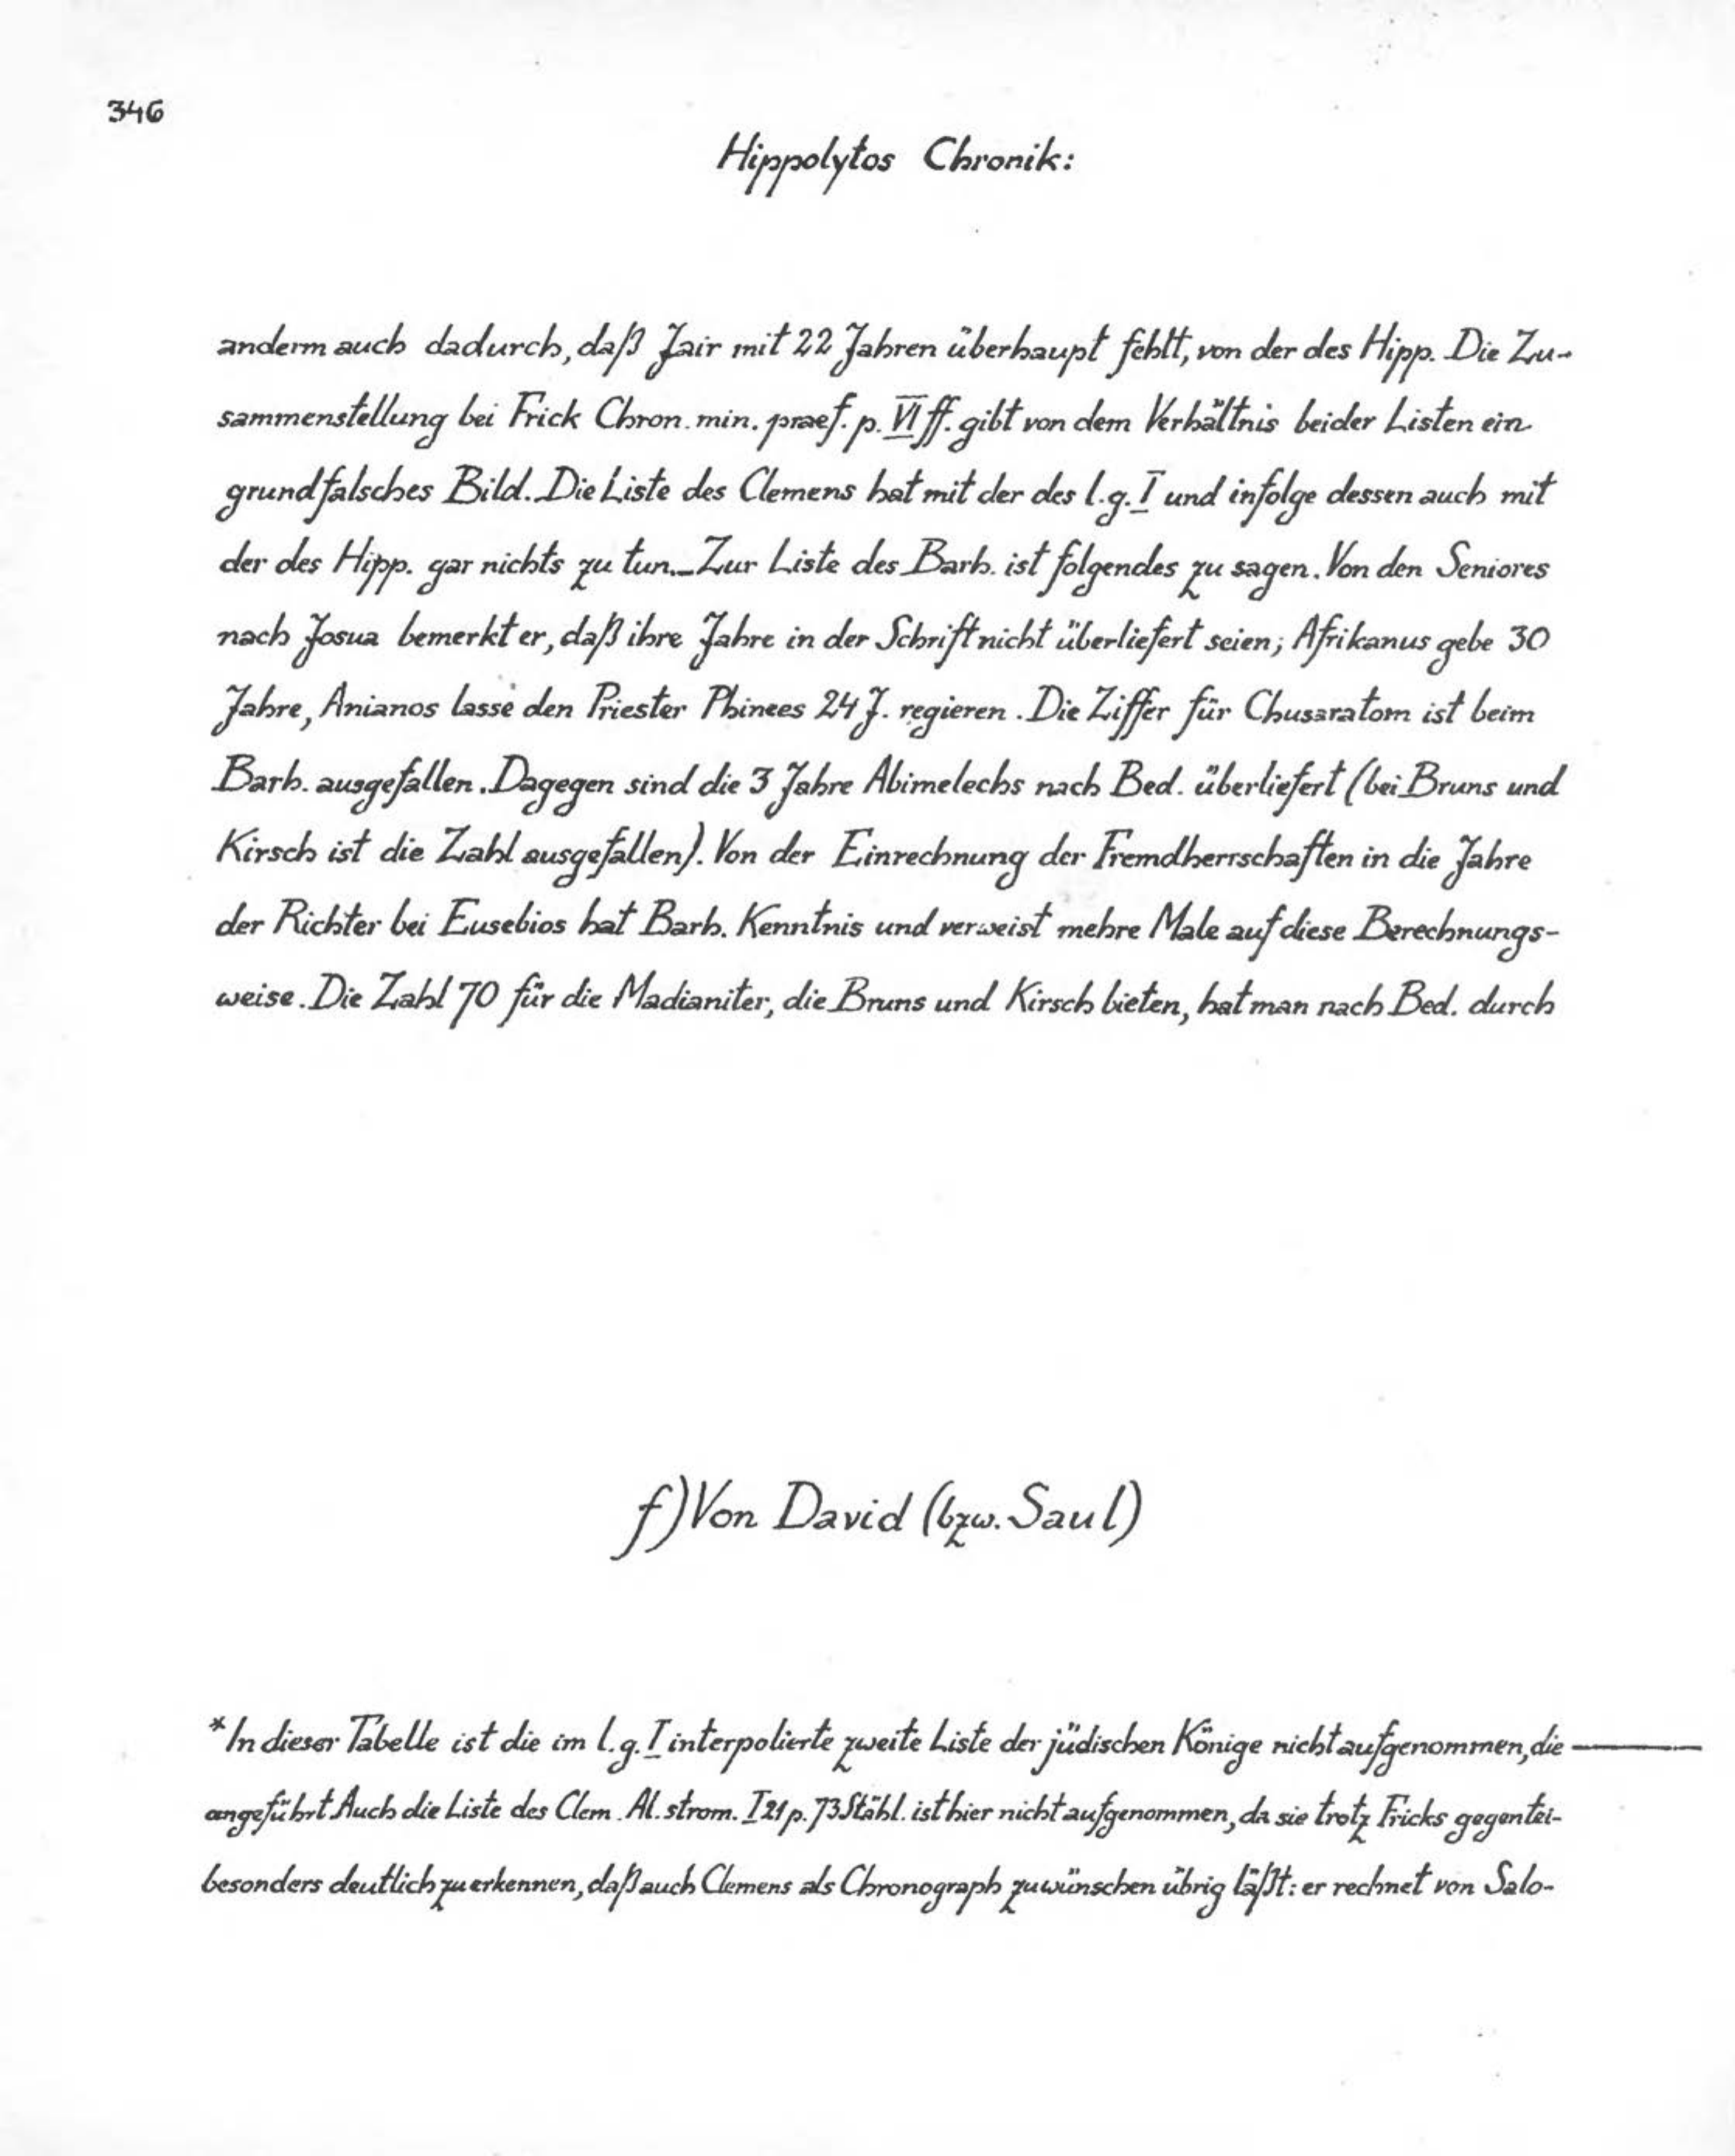 346
Hippolytos Chronik:
anderm auch dadurch, daß Jair mit 22 Jahren überhaupt fehlt, von der des Hipp. Die Zu-
sammenstellung bei Frick Chron. min. praef. p. VI ff. gibt von dem Verhältnis beider Listen ein
grundfalsches Bild. Die Liste des Clemens hat mit der des l.g. I und infolge dessen auch mit
der des Hipp. gar nichts zu tun._ Zur Liste des Barh. ist folgendes zu sagen. Von den Seniores
nach Josua bemerkt er, daß ihre Jahre in der Schrift nicht überliefert seien; Afrikanus gebe 30
Jahre, Anianos lasse den Priester Phinees 24 J. regieren. Die Ziffer für Chusaratom ist beim
Barh. ausgefallen. Dagegen sind die 3 Jahre Abimelechs nach Bed. überliefert (bei Bruns und
Kirsch ist die Zahl ausgefallen). Von der Einrechnung der Fremdherrschaften in die Jahre
der Richter bei Eusebios hat Barh. Kenntnis und verweist mehre Male auf diese Berechnungs-
weise. Die Zahl 70 für die Madianiter, die Bruns und Kirsch bieten, hat man nach Bed. durch
f) Von David (bzw. Saul)
*In dieser Tabelle ist die im l.g. I interpolierte zweite Liste der jüdischen Könige nicht aufgenommen, die
angeführt Auch die Liste des Clem. Al. strom. I 21 p. 73 Stähl. ist hier nicht aufgenommen, da sie trotz Fricks gegentei-
besonders deutlich zu erkennen, daß auch Clemens als Chronograph zu wünschen übrig läßt: er rechnet von Salo-